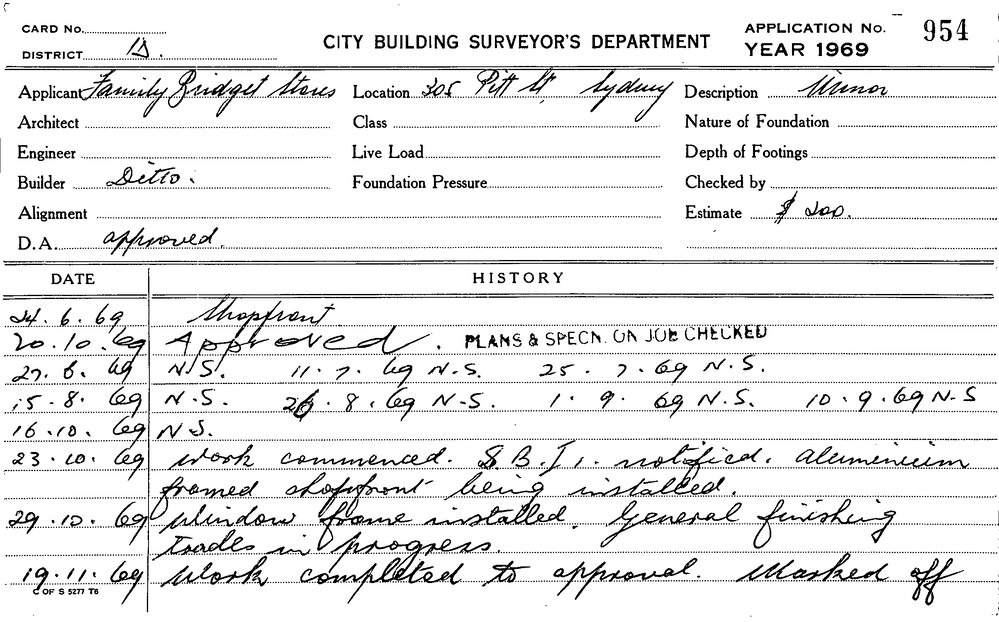 CARD No.
DISTRICT D.
CITY BUILDING SURVEYOR'S DEPARTMENT
APPLICATION No. 954
YEAR 1969
Applicant Family Bridget Stores Location 305 Pitt St, Sydney Description Minor
Architect Class Nature of Foundation
Engineer Live Load Depth of Footings
Builder Ditto. Foundation Pressure Checked by
Alignment Estimate $ 200.
D.A. approved.
DATE HISTORY
24.6.69 Shopfront
20.10.69 Approved. PLANS & SPECN. ON JOB CHECKED
27.6.69 N.S. 11.7.69 N.S. 25.7.69 N.S.
15.8.69 N.S. 26.8.69 N.S. 1.9.69 N.S. 10.9.69 N-S
16.10.69 N.S.
23.10.69 Work commenced. S.B.I. notified. Aluminium
framed shopfront being installed.
29.10.69 Window frame installed. General finishing
trades in progress.
19.11.69 Work completed to approval. Marked off
C OF S 5277 T6